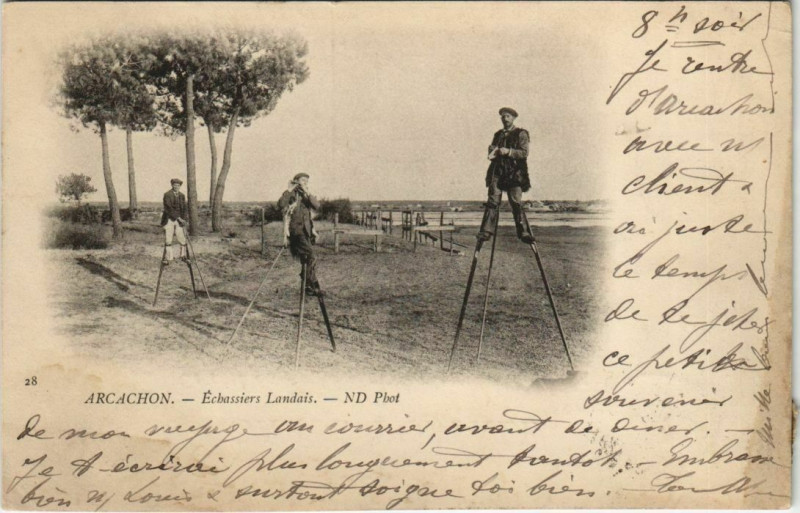 8 h soir
Je rentre
d'arcachon
avec un
client &
ai juste
le temps
de te jeter
ce petit
souvenir
28
ARCACHON. — Échassiers Landais. — ND Phot
de mon voyage au courrier, avant de diner. —
Je t'écrirai plus longuement tantôt — Embrasse
bien Louis & surtout soigne toi bien. — Ton